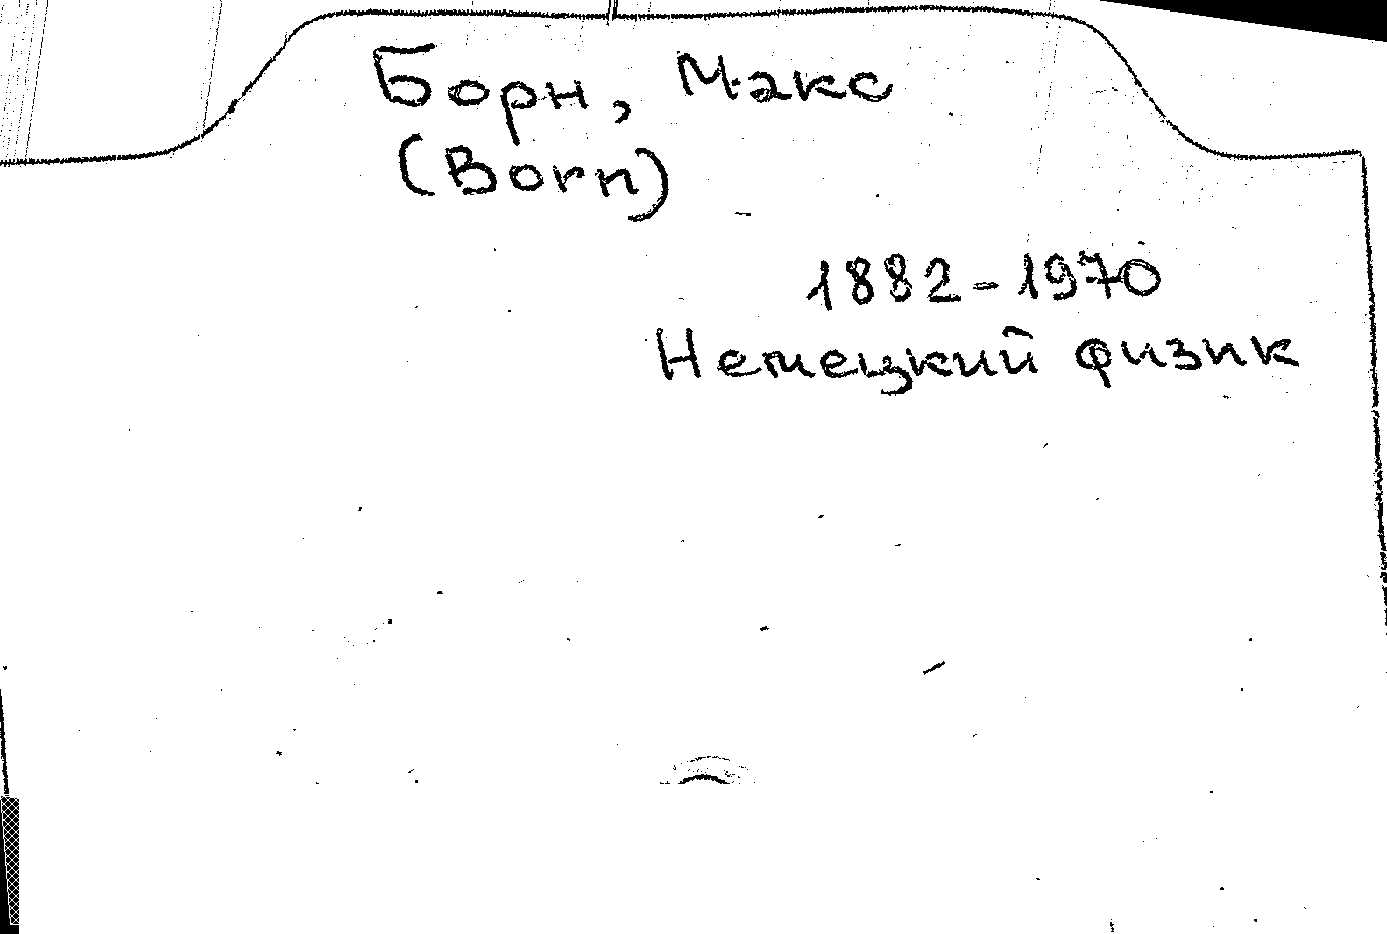 Борн, Макс
(Born)
1882-1970
Немецкий физик